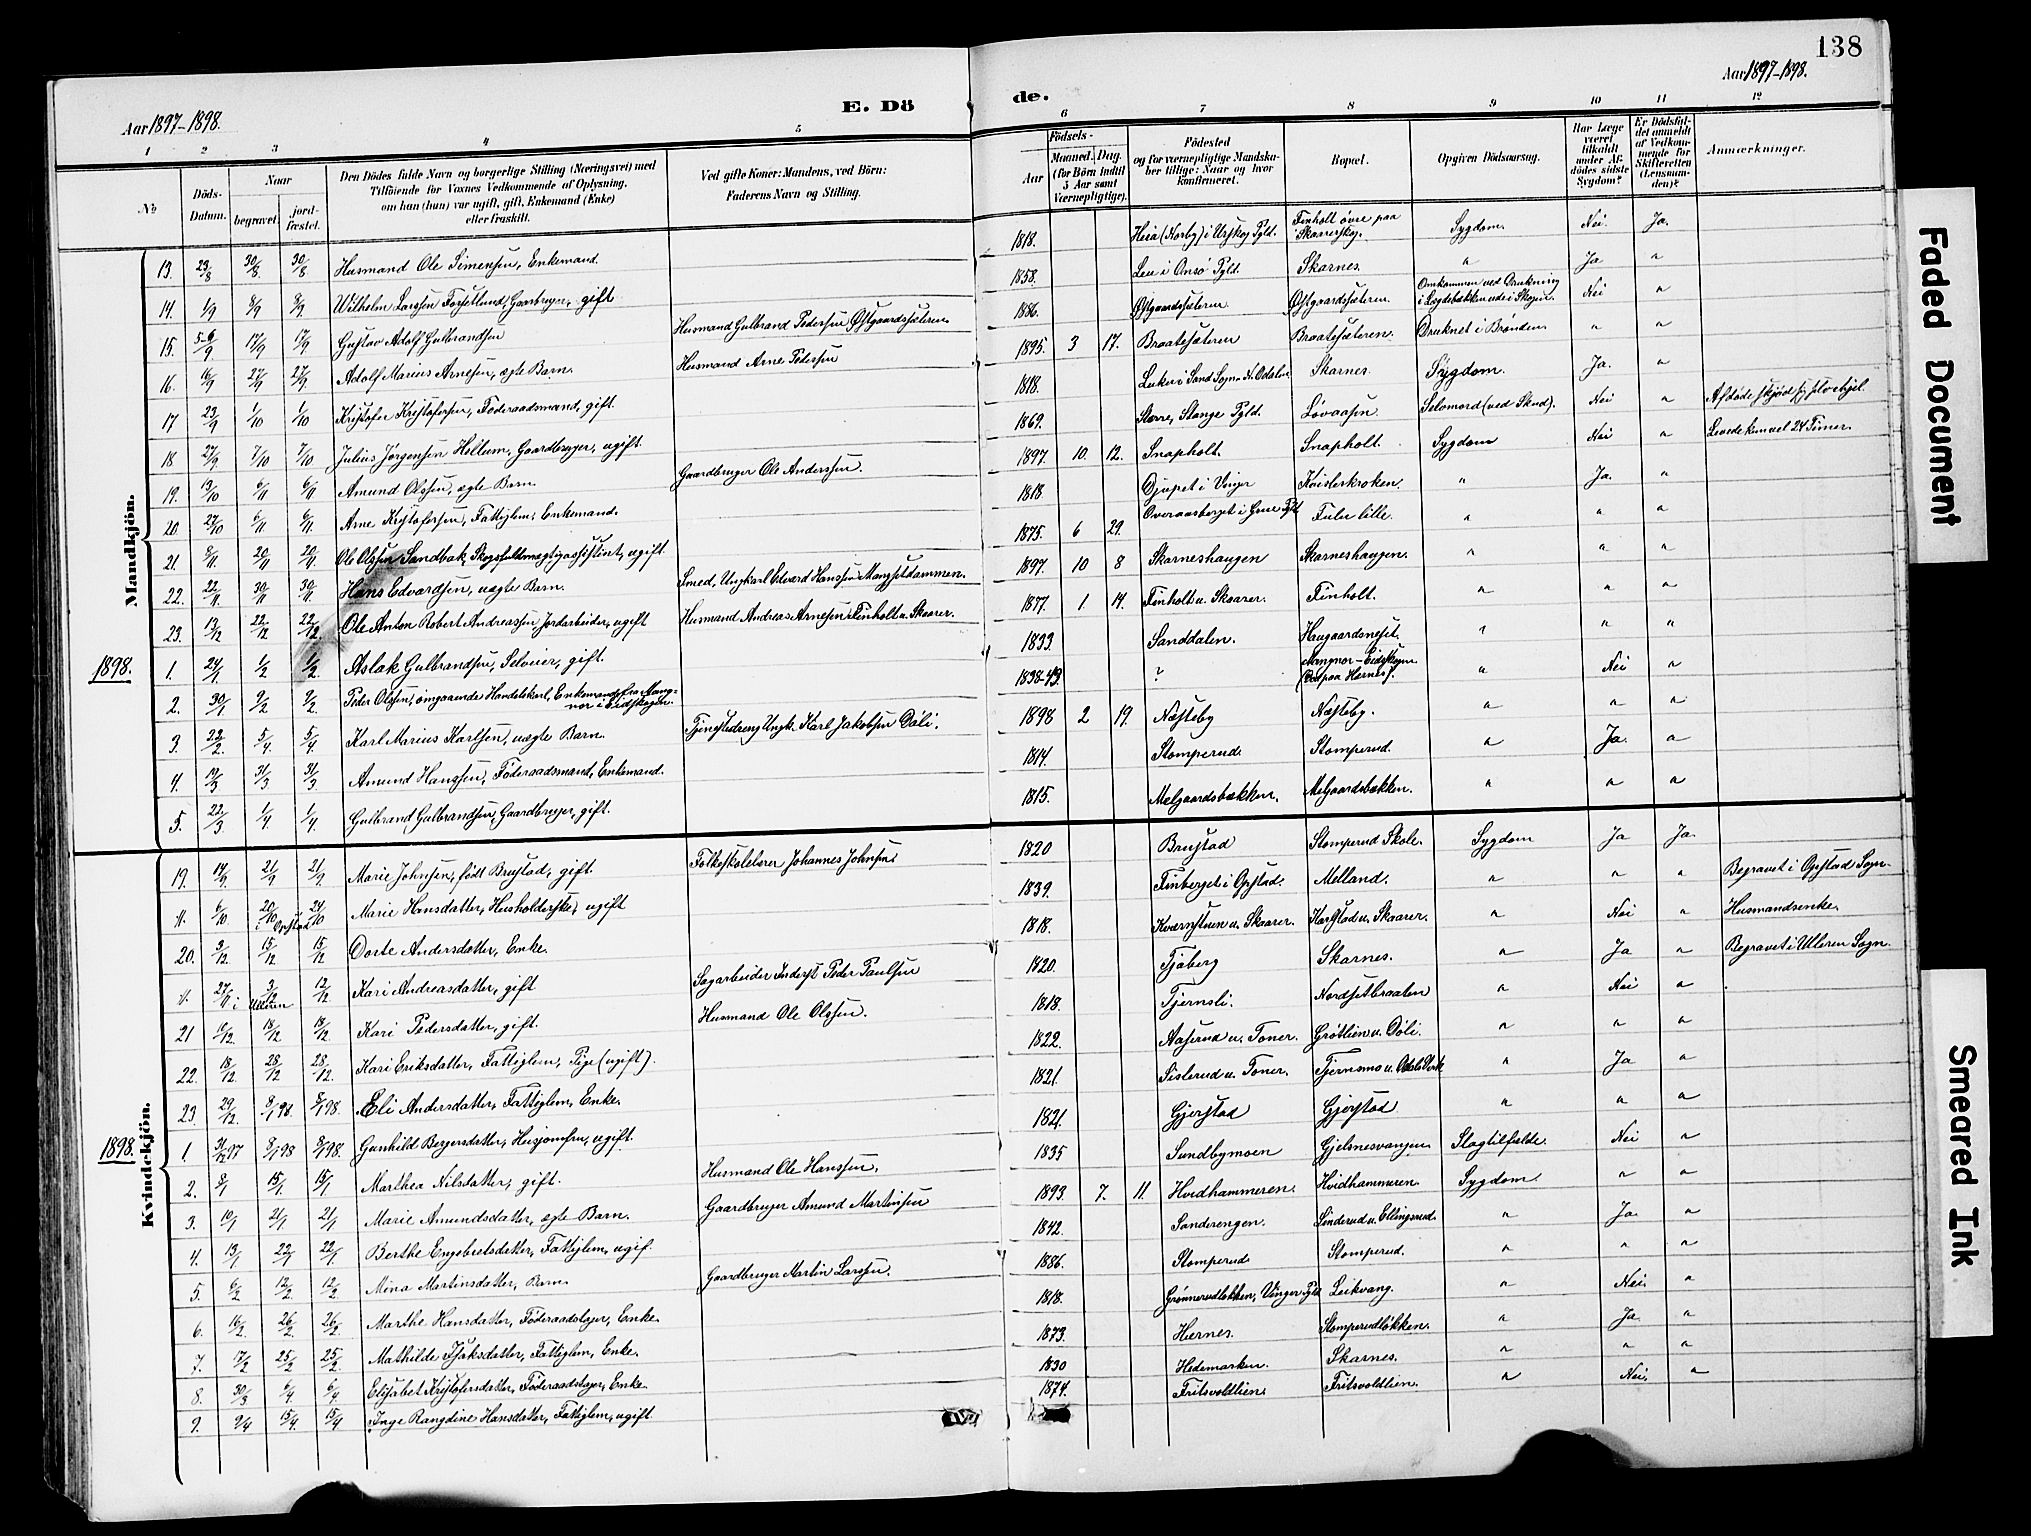 138
Aar 1897-1898.
Aar 1897-1898.
E. Dö de.
1 2 3 4 5 6 7 8 9 10 11 12
№
Döds-Datum.
Naar
begravet.
jord-fæstet.
Den Dödes fulde Navn og borgerlige Stilling (Næringsvei) med
Tilföiende for Voxnes Vedkommende af Oplysning,
om han (hun) var ugift, gift, Enkemand (Enke)
eller fraskilt.
Ved gifte Koner: Mandens, ved Börn:
Faderens Navn og Stilling.
Födsels-
Aar
Maaned. Dag.
(for Börn indtil 5 Aar samt Værnepligtige).
Födested
og for værnepligtige Mandska-
ber tillige: Naar og hvor
konfirmeret.
Bopæl.
Opgiven Dödsaarsag.
Har Læge været tilkaldt under Af-dödes sidste Sygdom?
Er Dödsfal-det anmeldt af Vedkom-mende for Skifteretten (Lensman-den)?
Anmærkninger.
Mandkjön.
13. 23/8 30/8 30/8 Husmand Ole Simensen, Enkemand. 1818. Heia (Norby) i Urskog Pgld. Finholt øvre paa Skarerskog. Sygdom. Nei. Ja.
14. 1/9 8/9 8/9 Wilhelm Larsen Forsetlund, Gaardbruger, gift 1858. Leu i Onsø Pgld. Skarnes. " Ja "
15. 5-6/9 17/9 17/9 Gustav Adolf Gulbrandsen Husmand Gulbrand Pedersen Østgaardssæteren. 1886. Østgaardssæteren Østgaardssæteren. Omkommen ved Drukning i Sagdebækken ude i Skogen. Nei "
16. 16/9 27/9 27/9 Adolf Marius Arnesen, ægte Barn. Husmand Arne Pedersen 1895. 3 17. Braatesæteren Braatesæteren. Druknet i Brønden. " "
17 23/9 1/10 1/10 Kristofer Kristofersen, Føderaadsmand, gift. 1818. Luker i Sand Sogn N. Odalen Skarnes. Sygdom. Ja. "
18 27/9 7/10 7/10 Julius Jørgensen Holtum, Gaardbruger, ugift. 1869. Større, Stange Pgld. Løvaasen. Selvmord (ved Skud). Nei " Afdøde skjød sig selv ihjel.
19. 13/10 6/11 6/11 Amund Olssen, ægte Barn. Gaardbruger Ole Anderssen. 1897. 10. 12. Snapholt. Snapholt. Sygdom Nei " Levede kun vel 24 Timer.
20. 27/10 6/11 6/11. Arne Kristofersen, Fattiglem, Enkemand. 1818. Djupet i Vinger Kvisterkroken. " Ja. "
21. 8/11. 20/11 20/11 Ole Olssen Sandbak, Skogsfuldmægtigassistent, ugift. 1875. 6 29. Overaasberget i Grue Pgld Fuler lille. " " "
22. 22/11 30/11 30/11. Hans Edvardsen, uægte Barn. Smed, Ungkarl Edvard Hanssen Mangsetdammen. 1897. 10 8 Skarneshaugen Skarneshaugen. " " "
23. 13/12 22/12 22/12 Ole Anton Robert Andreassen Jordarbeider, ugift Husmand Andreas Arnesen Finholt u. Skaarer. 1877. 1. 14. Finholt u. Skaarer. Finholt. " " "
1898.
1. 24/1 1/2 1/2 Aslak Gulbrandsen, Selveier, gift. 1833. Sanddalen. Haugaardsneset. " " "
2. 30/1 9/2 9/2. Peder Olssen, omgaaende Handelskarl, Enkemand, fra Mang-
nor i Eidskogen. 1838-43. ? Mangnor - Eidskogen (Død paa Hernes). " Nei "
3. 22/2. 5/4 5/4 Karl Marius Karlsen, uægte Barn. Tjenestedreng Ungk. Karl Jakobsen Dali. 1898 2 19. Næsteby Næsteby. " " "
4. 19/3 31/3 31/3 Amund Hanssen, Føderaadsmand, Enkemand. 1814. Stomperud. Stomperud. " Ja. "
5. 22/3 1/4 1/4 Gulbrand Gulbrandsen, Gaardbruger, gift. 1815. Melgaardsbækken. Melgaardsbækken. " " "
Kvindekjön.
19. 14/9. 21/9 21/9. Marie Johnsen, født Brustad, gift. Folkeskolelærer Johannes Johnsen 1820 Brustad Stomperud Skole. Sygdom Ja Ja.
6/10 20/10 i Opstad 24/10 Marie Hansdatter, Husholderske, ugift 1839. Finberget i Opstad. Melland. " " " Begravet i Opstad Sogn.
20. 3/12. 15/12 15/12 Dorte Andersdatter, Enke. 1818. Kværnstuen u. Skaarer. Karlstad u. Skaarer. " Nei " Husmandsenke.
27/11 i Ulleren 3/12 12/12 Kari Andreasdatter, gift Sagarbeider Inderst Peder Paulsen 1820. Tjaberg Skarnes. " Ja " Begravet i Ulleren Sogn.
21 10/12 18/12 18/12 Kari Pedersdatter, gift. Husmand Ole Olssen. 1818. Tjernsli. Nordsetbraaten " Nei "
22. 18/12. 28/12 28/12. Kari Eriksdatter, Fattiglem, Pige (ugift). 1822. Aaserud u. Toner. Grøtlien u. Døli. " " "
23 29/12 8/1 98. 8/1 98. Eli Andersdatter, Fattiglem, Enke. 1821. Sisterud u. Toner. Tjernsmo u. Odals Verk " Ja "
1898.
1. 31/12 97 8/1 98 8/1 98. Gunhild Bergersdatter, Husjomfru, ugift. 1821. Gjerstad Gjerstad " " "
2. 8/1 15/1. 15/1 Marthea Nilsdatter, gift. Husmand Ole Hanssen. 1835 Sundbymoen Gjelsnesvangen Slagtilfælde. Nei "
3. 10/1 21/1 21/1 Marie Amundsdatter, ægte Barn. Gaardbruger Amund Martinsen 1893. 7. 11. Hvidhammeren. Hvidhammeren. Sygdom. " "
4. 13/1 22/1 22/1 Berthe Engebretsdatter, Fattiglem, ugif. 1842. Sanderengen. Linderud u. Ellingsrud. " Ja. "
5. 6/2 12/2 12/2 Mina Martinsdatter, Barn. Gaardbruger Martin Larssen. 1886. Stomperud Stomperud. " " "
6. 16/2. 26/2 26/2 Marthe Hansdatter, Føderaadstager, Enke. 1818. Grønnerudløkken, Vinger Pgld Leikvang. " Nei. "
7. 17/2 25/2 25/2 Mathilde Isaksdatter, Fattiglem, Enke. 1873. Hernes. Stomperudløkken. " Ja. "
8. 30/3 6/4 6/4 Elisabet Kristofersdatter, Føderaadstager, Enke. 1830 Hedemarken. Skarnes. " " "
9. 9/4 15/4 15/4 Inge Rangdine Hansdatter, Fattiglem, ugift. 1874. Fritsvoldlien. Fritsvoldlien. " Nei. "
Faded Document
Smeared Ink